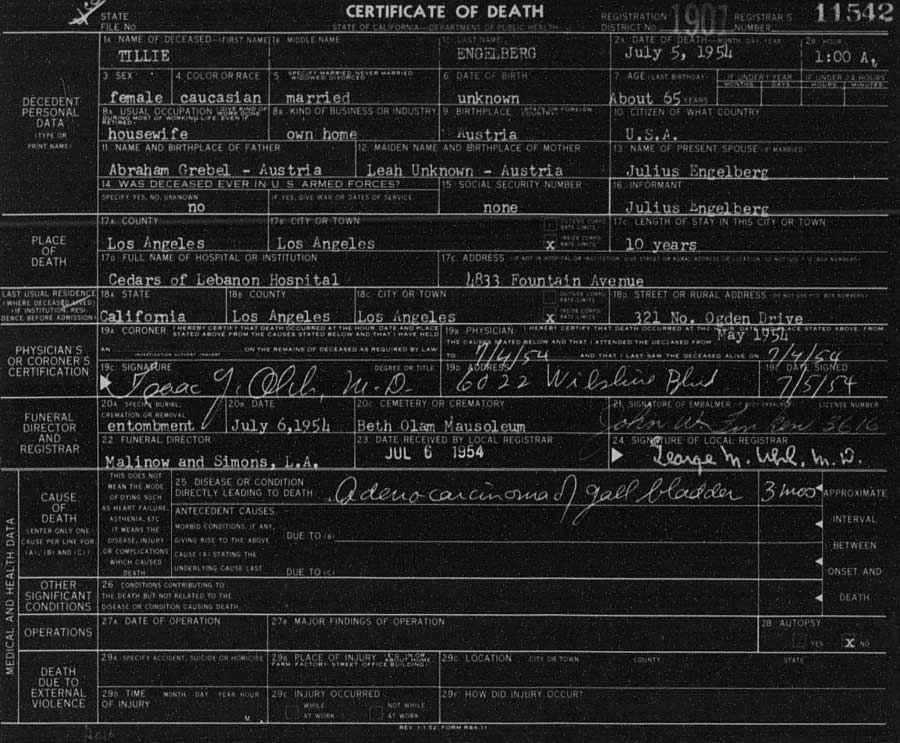 CERTIFICATE OF DEATH
STATE FILE NO
STATE OF CALIFORNIA—DEPARTMENT OF PUBLIC HEALTH
REGISTRATION DISTRICT NO 1901
REGISTRAR'S NUMBER 11542
1A NAME OF DECEASED—FIRST NAME
TILLIE
1B MIDDLE NAME
1C LAST NAME
ENGELBERG
2A DATE OF DEATH—MONTH, DAY, YEAR
July 5, 1954
2B HOUR
1:00 A.
DECEDENT PERSONAL DATA
(TYPE OR PRINT NAME)
3 SEX
female
4 COLOR OR RACE
caucasian
5 SPECIFY MARRIED NEVER MARRIED WIDOWED DIVORCED
married
6 DATE OF BIRTH
unknown
7 AGE (LAST BIRTHDAY)
About 65 YEARS
IF UNDER 1 YEAR
MONTHS DAYS
IF UNDER 24 HOURS
HOURS MINUTES
8A USUAL OCCUPATION (GIVE KIND OF WORK DONE DURING MOST OF WORKING LIFE, EVEN IF RETIRED)
housewife
8B KIND OF BUSINESS OR INDUSTRY
own home
9 BIRTHPLACE (STATE OR FOREIGN COUNTRY)
Austria
10 CITIZEN OF WHAT COUNTRY
U.S.A.
11 NAME AND BIRTHPLACE OF FATHER
Abraham Grebel - Austria
12 MAIDEN NAME AND BIRTHPLACE OF MOTHER
Leah Unknown - Austria
13 NAME OF PRESENT SPOUSE (IF MARRIED)
Julius Engelberg
14 WAS DECEASED EVER IN U S ARMED FORCES?
SPECIFY YES, NO, UNKNOWN
no
IF YES, GIVE WAR OR DATES OF SERVICE
15 SOCIAL SECURITY NUMBER
none
16 INFORMANT
Julius Engelberg
PLACE OF DEATH
17A COUNTY
Los Angeles
17B CITY OR TOWN
Los Angeles
OUTSIDE CORPORATE LIMITS
X INSIDE CORPORATE LIMITS
17C LENGTH OF STAY IN THIS CITY OR TOWN
10 years
17D FULL NAME OF HOSPITAL OR INSTITUTION
Cedars of Lebanon Hospital
17E ADDRESS
4833 Fountain Avenue
LAST USUAL RESIDENCE
(WHERE DECEASED LIVED)
(IF INSTITUTION, RESIDENCE BEFORE ADMISSION)
18A STATE
California
18B COUNTY
Los Angeles
18C CITY OR TOWN
Los Angeles
X
18D STREET OR RURAL ADDRESS
321 No. Ogden Drive
PHYSICIAN'S OR CORONER'S CERTIFICATION
19A CORONER: I HEREBY CERTIFY THAT DEATH OCCURRED AT THE HOUR, DATE AND PLACE STATED ABOVE FROM THE CAUSES STATED BELOW AND THAT I HAVE HELD
AN
ON THE REMAINS OF DECEASED AS REQUIRED BY LAW
19B PHYSICIAN: I HEREBY CERTIFY THAT DEATH OCCURRED AT THE HOUR, DATE AND PLACE STATED ABOVE, FROM THE CAUSES STATED BELOW AND THAT I ATTENDED THE DECEASED FROM May 1954
TO 7/4/54 AND THAT I LAST SAW THE DECEASED ALIVE ON 7/4/54
19C SIGNATURE
DEGREE OR TITLE
M.D.
19D ADDRESS
6022 Wilshire Blvd
19E DATE SIGNED
7/5/54
FUNERAL DIRECTOR AND REGISTRAR
20A SPECIFY BURIAL, CREMATION OR REMOVAL
entombment
20B DATE
July 6, 1954
20C CEMETERY OR CREMATORY
Beth Olam Mausoleum
21 SIGNATURE OF EMBALMER
LICENSE NUMBER
22 FUNERAL DIRECTOR
Malinow and Simons, L.A.
23 DATE RECEIVED BY LOCAL REGISTRAR
JUL 6 1954
24 SIGNATURE OF LOCAL REGISTRAR
George M. Uhl, M.D.
MEDICAL AND HEALTH DATA
CAUSE OF DEATH
(ENTER ONLY ONE CAUSE PER LINE FOR (A), (B) AND (C))
THIS DOES NOT MEAN THE MODE OF DYING SUCH AS HEART FAILURE, ASTHENIA, ETC IT MEANS THE DISEASE, INJURY OR COMPLICATIONS WHICH CAUSED DEATH
25 DISEASE OR CONDITION DIRECTLY LEADING TO DEATH (A)
Adenocarcinoma of gall bladder
3 mos
ANTECEDENT CAUSES
MORBID CONDITIONS, IF ANY, GIVING RISE TO THE ABOVE CAUSE (A) STATING THE UNDERLYING CAUSE LAST
DUE TO (B)
DUE TO (C)
APPROXIMATE INTERVAL BETWEEN ONSET AND DEATH
OTHER SIGNIFICANT CONDITIONS
26 CONDITIONS CONTRIBUTING TO THE DEATH BUT NOT RELATED TO THE DISEASE OR CONDITION CAUSING DEATH
OPERATIONS
27A DATE OF OPERATION
27B MAJOR FINDINGS OF OPERATION
28 AUTOPSY
YES X NO
DEATH DUE TO EXTERNAL VIOLENCE
29A SPECIFY ACCIDENT, SUICIDE OR HOMICIDE
29B PLACE OF INJURY (E.G. IN OR ABOUT HOME, FARM FACTORY STREET OFFICE BUILDING)
29C LOCATION CITY OR TOWN COUNTY STATE
29D TIME OF INJURY MONTH DAY YEAR HOUR
M
29E INJURY OCCURRED
WHILE AT WORK
NOT WHILE AT WORK
29F HOW DID INJURY OCCUR?